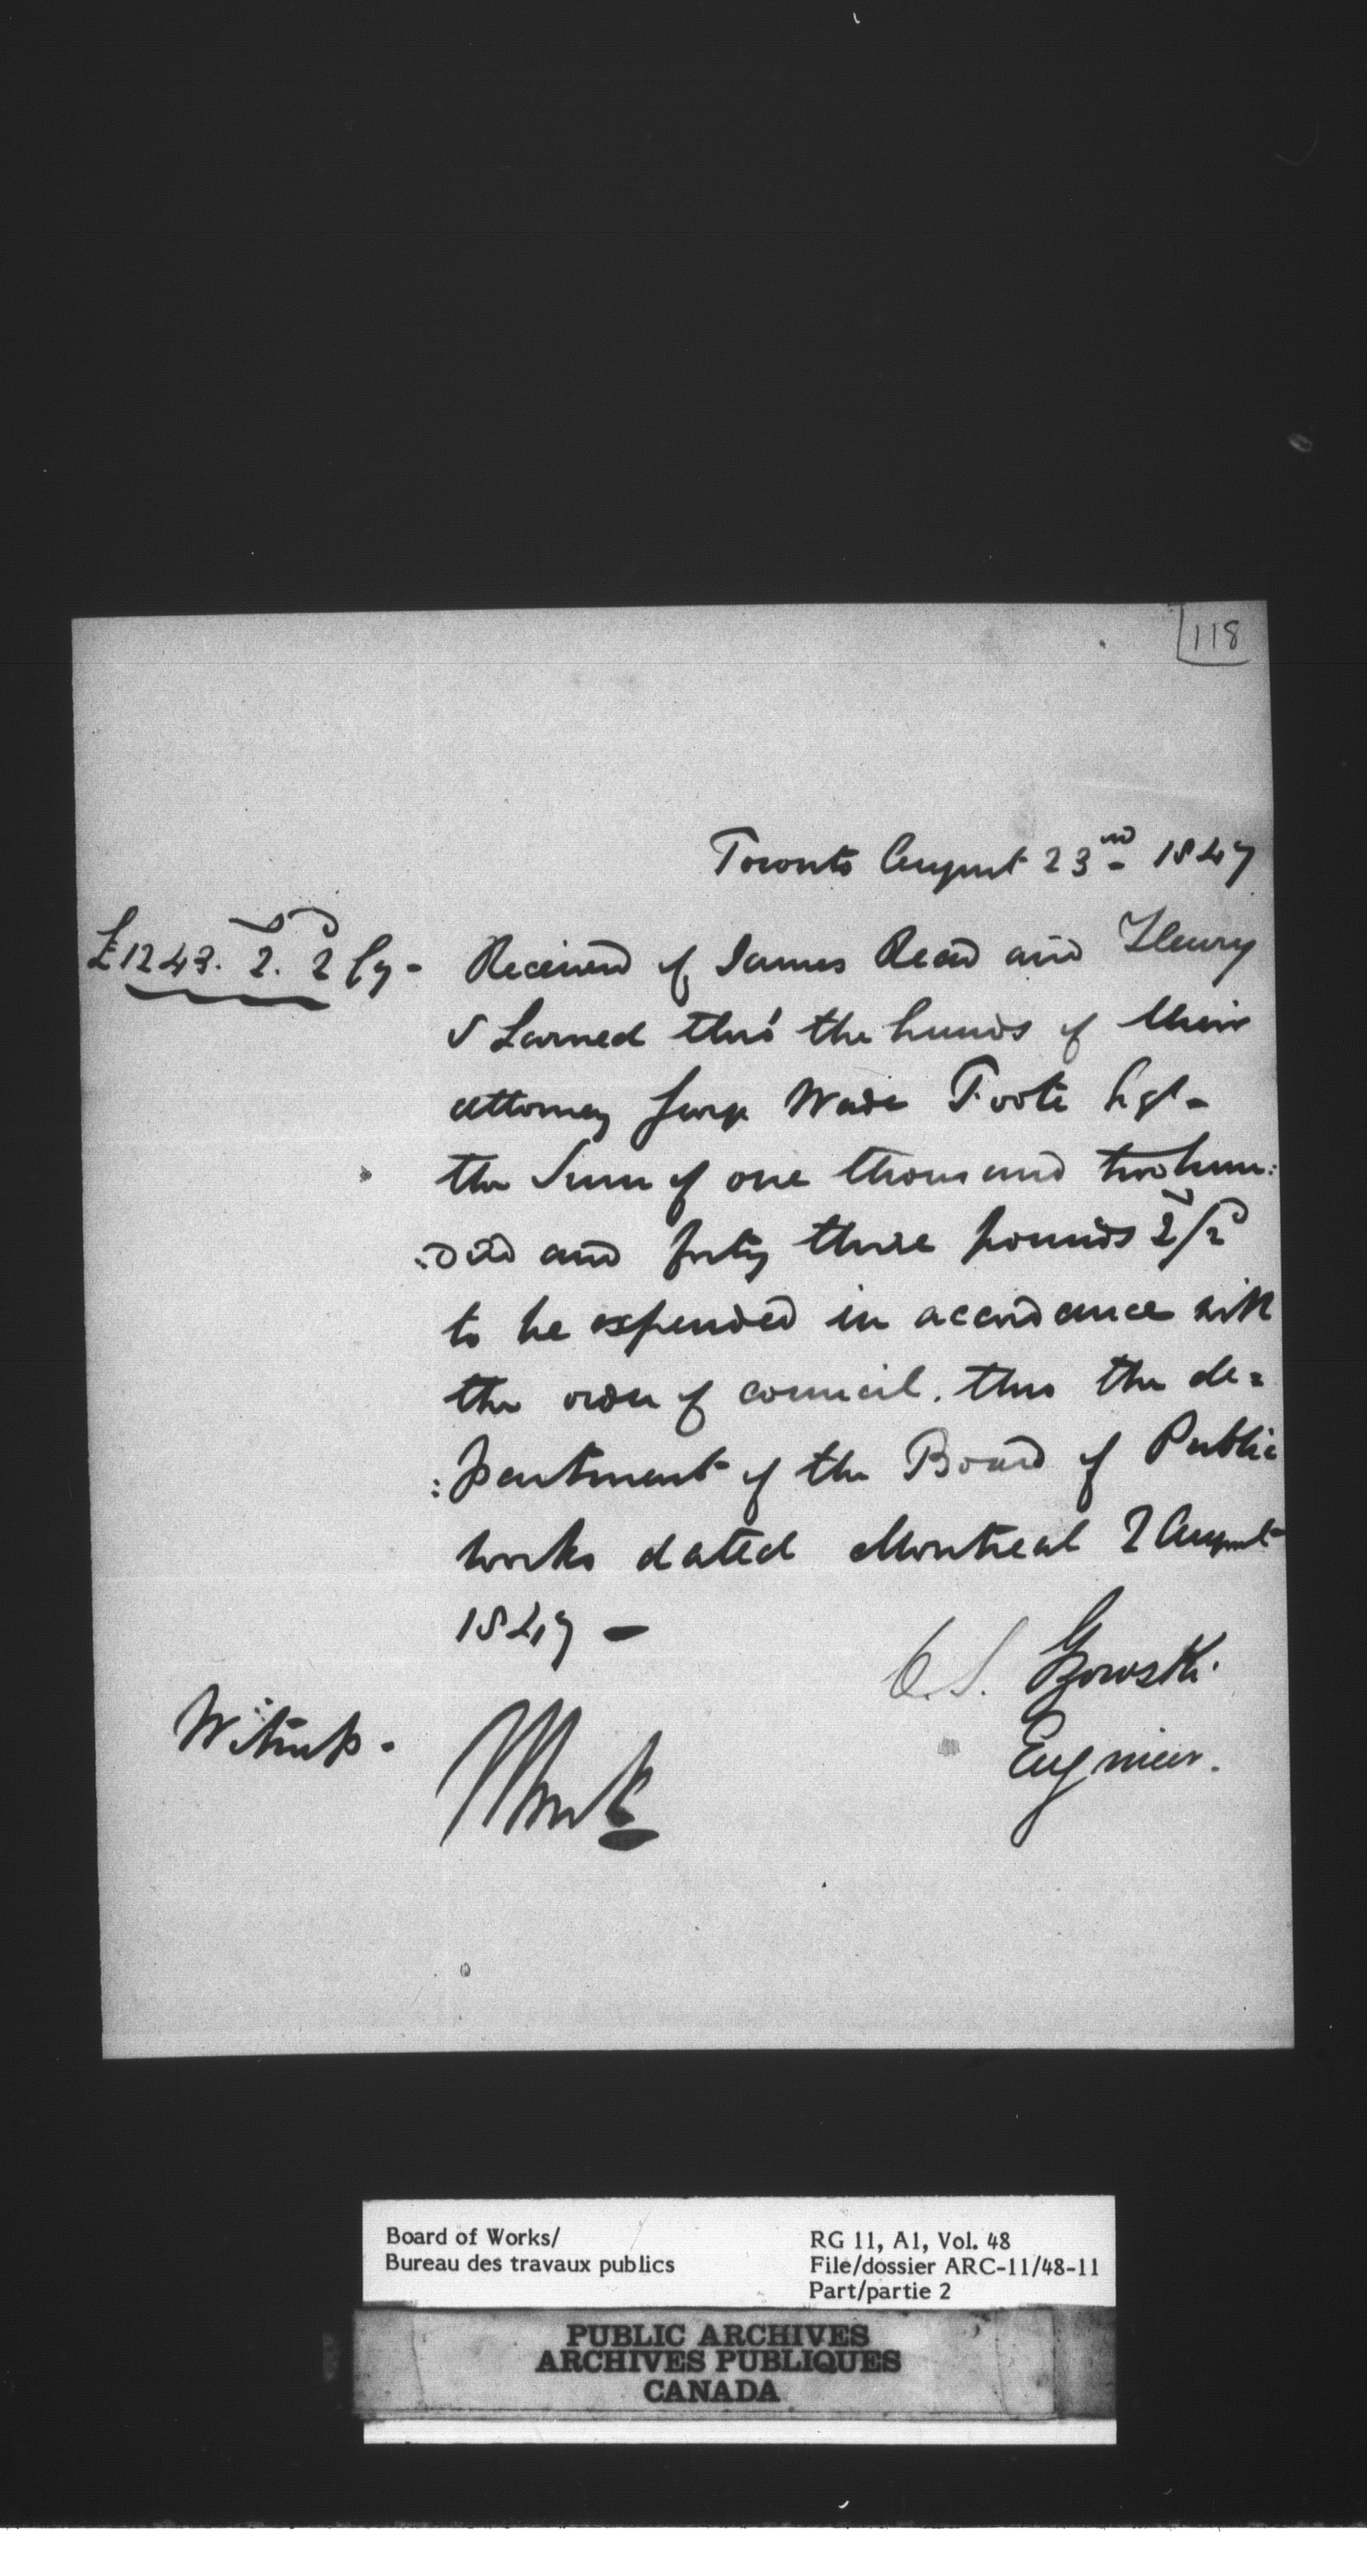 118
Toronto August 23nd 1847
£1243. 2. 2 Cy - Received of James Read and Henry
S Larned thro' the hands of their
attorney George Wade Foote Esq -
the Sum of one thousand two hun:
:dred and forty three pounds 2/2d
to be expended in accordance with
the order of council. thro the de=
:partment of the Board of Public
works dated Montreal 2 August
1847 -
C. S. Gzowski.
Engineer.
Witness -
Board of Works/
Bureau des travaux publics
RG 11, A1, Vol. 48
File/dossier ARC-11/48-11
Part/partie 2
PUBLIC ARCHIVES
ARCHIVES PUBLIQUES
CANADA